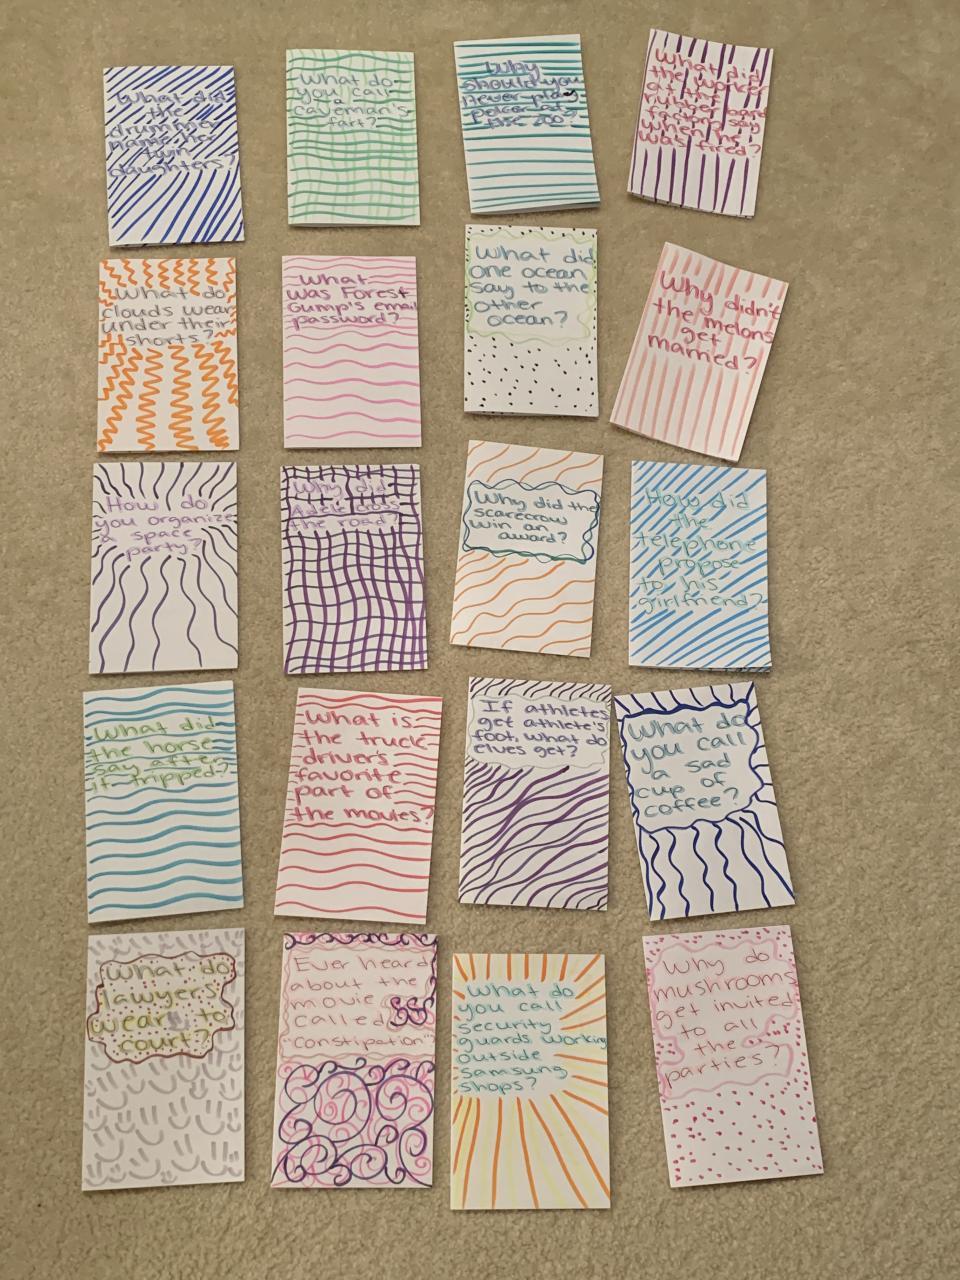 What did
the
drummer
name his
twin
daughters?
What do
you call
a
caveman's
fart?
Why
should you
never play
poker at
the zoo?
What did
the worker
at the
rubber band
factory say
when he
was fired?
What do
clouds wear
under their
shorts?
What
was Forest
Gump's email
password?
What did
one ocean
say to the
other
ocean?
Why didn't
the melons
get
married?
How do
you organize
a space
party?
Why did
Adele cross
the road?
Why did the
scarecrow
win an
award?
How did
the
telephone
propose
to his
girlfriend?
What did
the horse
say after
it tripped?
What is
the truck
driver's
favorite
part of
the movies?
If athletes
get athlete's
foot, what do
elves get?
What do
you call
a sad
cup of
coffee?
What do
lawyers
wear to
court?
Ever heard
about the
movie
called
"Constipation"
What do
you call
security
guards working
outside
Samsung
shops?
Why do
mushrooms
get invited
to all
the
parties?